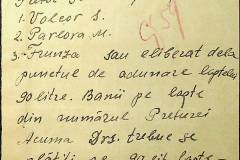 1. Volcov S.
2. Parlora M.
3. Frunza sau eliberat dela
punctul de adunare laptelui
90 litre. Banii pe lapte
din numărul Preturei
Acuma Drs. trebue se
plătiți pe 90 lit lapte